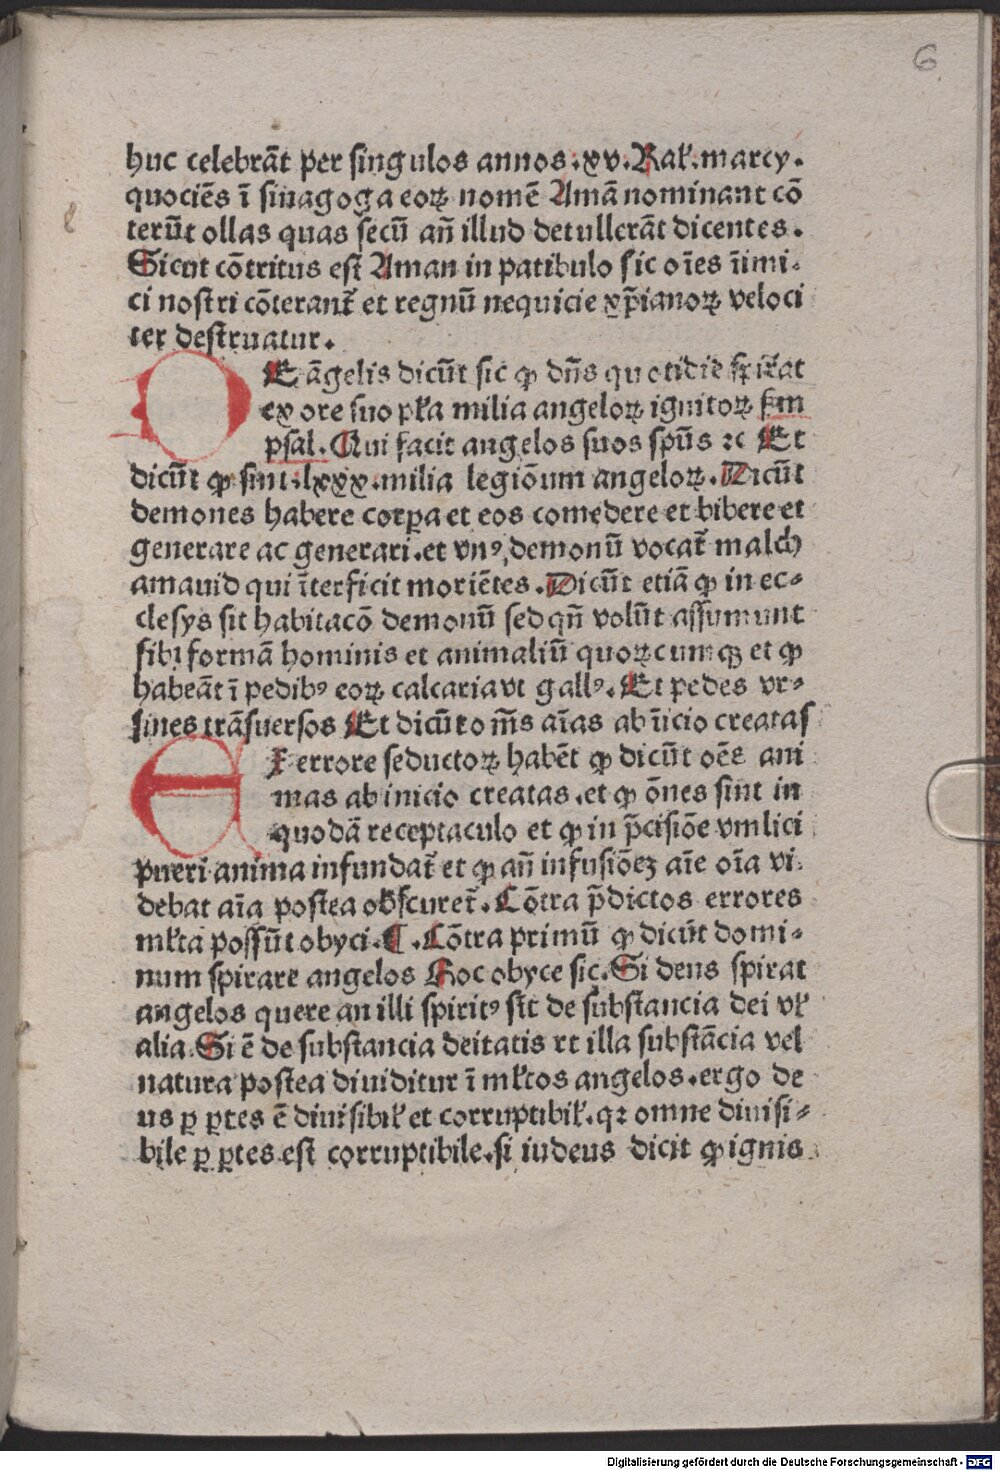 6
huc celebrāt per singulos annos.xv.Kaꝉ.marcy.
quociēs ī sinagoga eoꝝ nomē Amā nominant cō
terūt ollas quas secū añ illud detullerāt dicentes.
Sicut cōtritus est Aman in patibulo sic oīes īimi⸗
ci nostri cōterant᷑ et regnū nequicie xp̄ianoꝝ veloci
ter destruatur.
DE āgelis dicūt sic ꝙ dn̄s quotidie spirat
ex ore suo pꝉa milia angeloꝝ ignitoꝝ
psal. Qui facit angelos suos spūs ⁊c Et
dicūt ꝙ sint.lxxx.milia legiōum angeloꝝ.Dicūt
demones habere corꝑa et eos comedere et bibere et
generare ac generari.et vnꝰ demonū vocat᷑ malch
amauid qui īterficit moriētes.Dicūt etiā ꝙ in ec⸗
clesys sit habitacō demonū sed qn̄ volūt assumunt
sibi formā hominis et animaliū quoꝝcumqꝫ et ꝙ
habeāt ī pedibꝰ eoꝝ calcaria vt gallꝰ.Et pedes vr⸗
sines trāsuersos Et dicūt om̄s aīas ab īicio creatas
EX errore seductoꝝ habēt ꝙ dicūt oēs ani
mas ab inicio creatas.et ꝙ ōnes sint in
quodā receptaculo et ꝙ in p̄cisiōe vmlici
pueri anima infundat᷑ et ꝙ añ infusiōeꝫ aīe oīa vi⸗
debat aīa postea obscuret᷑.Cōtra p̄dictos errores
mꝉta possūt obyci.¶.Cōtra primū ꝙ dicūt domi⸗
num spirare angelos Hoc obyce sic.Si deus spirat
angelos quere an illi spiritꝰ sīt de substancia dei vꝉ
alia.Si ē de substancia deitatis et illa substācia vel
natura postea diuiditur ī mꝉtos angelos.ergo de
us ꝑ ꝑtes ē diuisibiꝉ et corruptibiꝉ.qꝛ omne diuisi⸗
bile ꝑ ꝑtes est corruptibile.si iudeus dicit ꝙ ignis
Digitalisierung gefördert durch die Deutsche Forschungsgemeinschaft - DFG